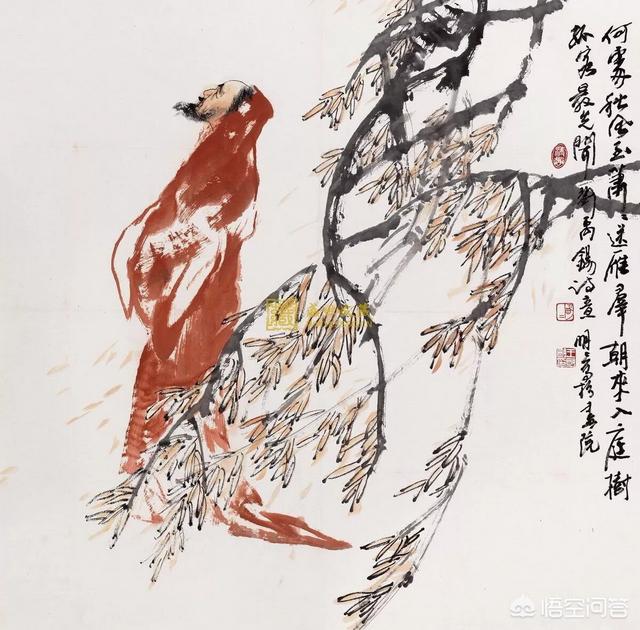 何處秋風至蕭〻送雁羣朝來入庭樹
孤客最先聞劉禹錫詩意
悟空问答